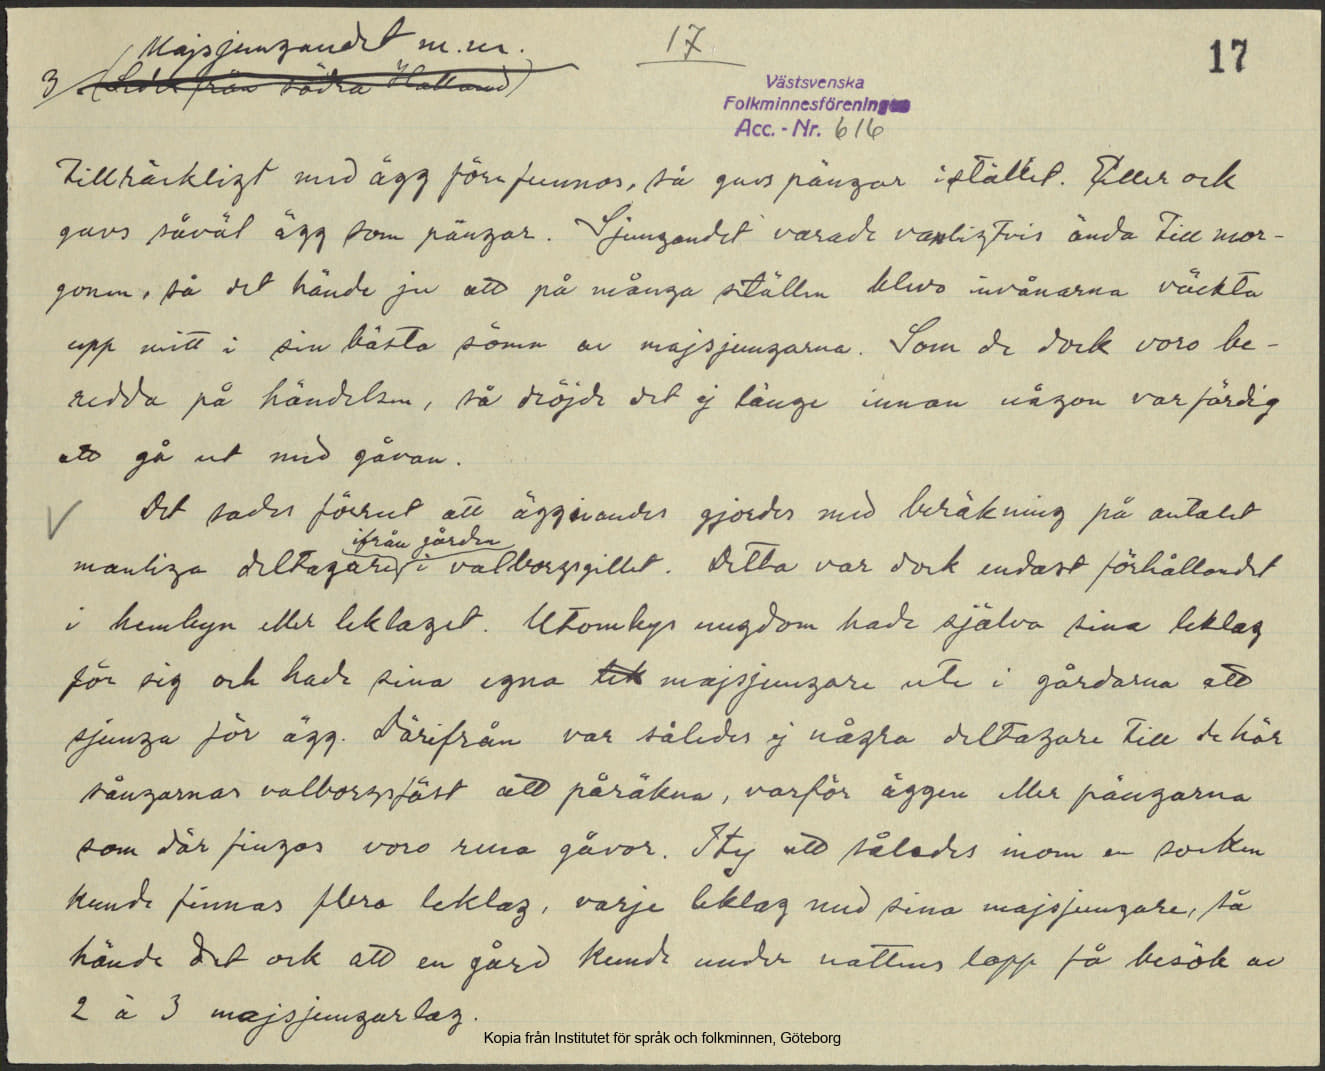 Majsjungandet m.m.
17
17
3 (Seder från södra Halland)
Västsvenska
Folkminnesföreningen
Acc. - Nr. 616
tillräckligt med ägg förefunnos, så gavs pängar istället. Eller ock
gavs såväl ägg som pängar. Sjungandet varade vanligtvis ända till mor-
gonen, så det hände ju att på många ställen blevo invånarna väckta
upp mitt i sin bästa sömn av majsjungarna. Som de dock voro be-
redda på händelsen, så dröjde det ej länge innan någon var färdig
att gå ut med gåvan.
Det sades förrut att äggivandes gjordes med beräkning på antalet
ifrån gården
manliga deltagare i valborgsgillet. Detta var dock endast förhållandet
i hembyn eller leklaget. Utombys ungdom hade själva sina leklag
för sig och hade sina egna lek majsjungare ute i gårdarna att
sjunga för ägg. Därifrån var således ej några deltagare till de här
sångarnas valborgsfäst att påräkna, varför äggen eller pängarna
som där fingos voro rena gåvor. Ity att således inom en socken
kunde finnas flera leklag, varje leklag med sina majsjungare, så
hände det ock att en gård kunde under nattens lopp få besök av
2 à 3 majsjungarlag.
Kopia från Institutet för språk och folkminnen, Göteborg